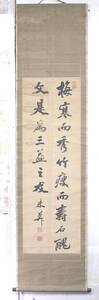 梅寒而秀竹瘦而壽石醜
文是為三益之友